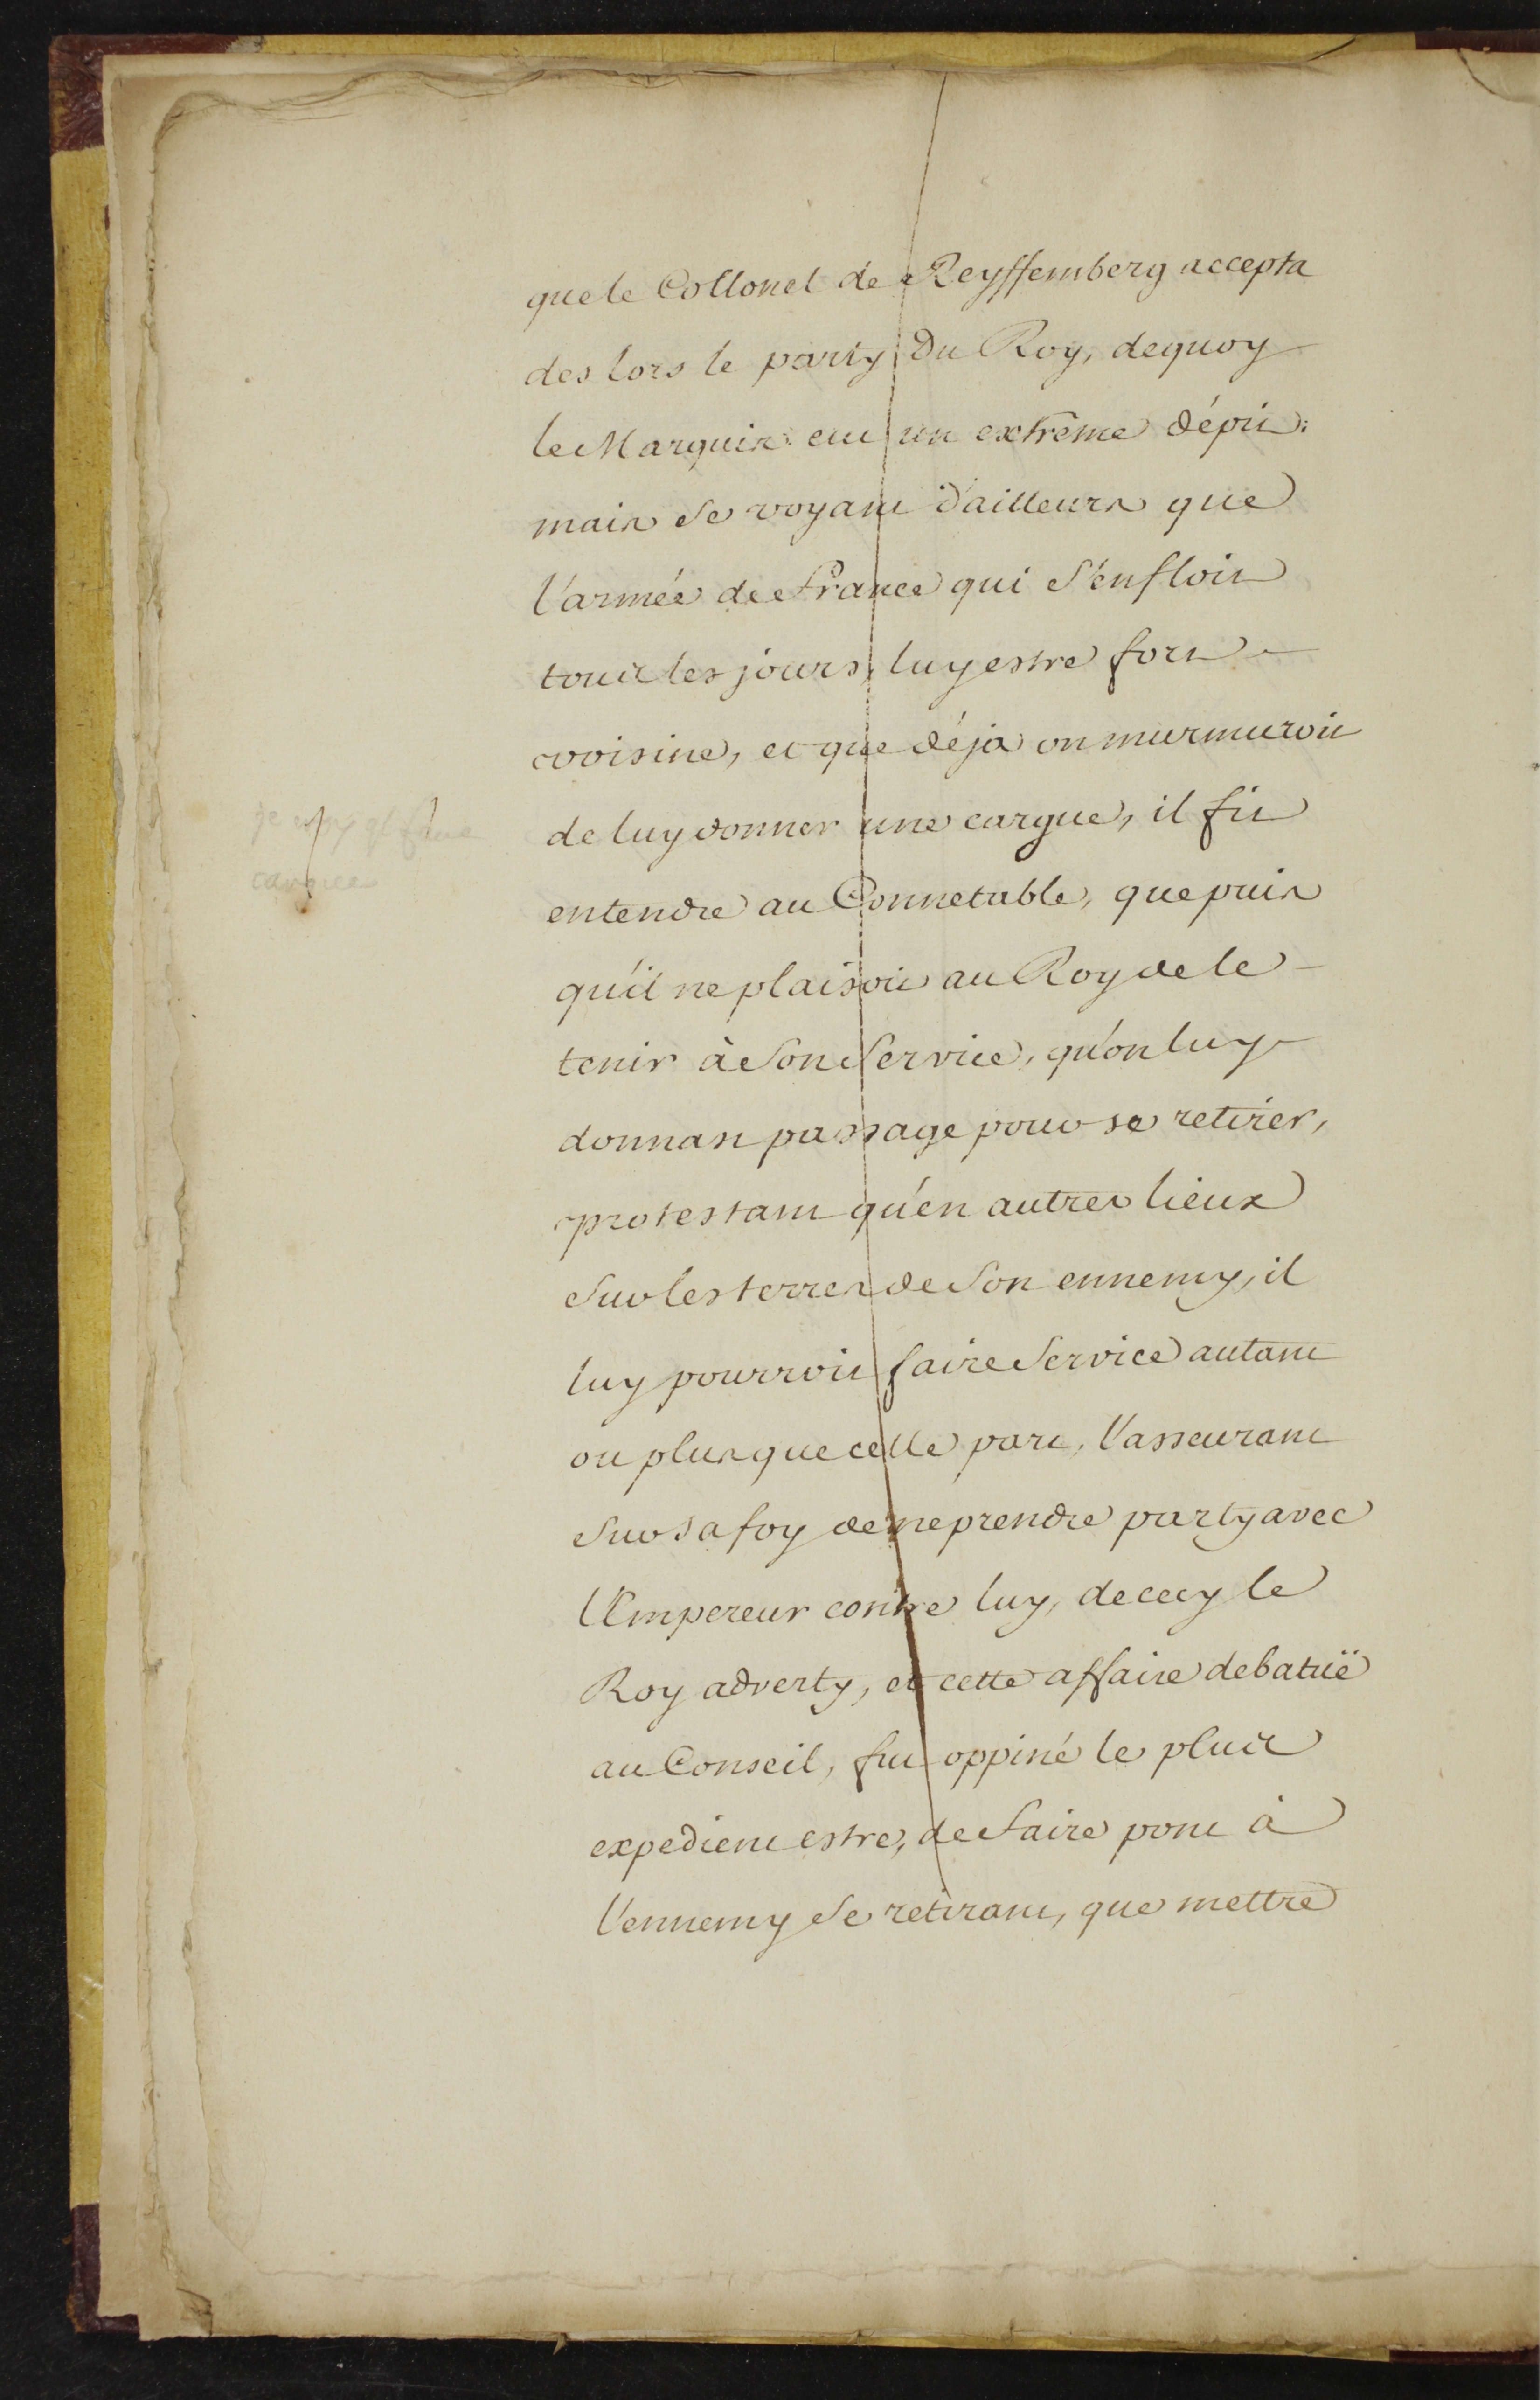 que le Collonel de Reyffemberg accepta
des lors le party Du Roy, dequoy
le Marquis eut un extrême dépit:
mais se voyant d'ailleurs que
l'armée de France qui s'enfloit
tous les jours, luy estre fort
voisine, et que déja on murmuroit
de luy donner une cargue, il fit
entendre au Connetable, que puis
qu'il ne plaisoit au Roy de le
tenir à Son Service, qu'on luy
donnast passage pour se retirer,
protestant qu'en autres lieux
Sur les terres de Son ennemy, il
luy pourroit faire Service autant
ou plus que celle part, l'asseurant
Sur sa foy de ne prendre party avec
l'Empereur contre luy, de cecy le
Roy adverty, et cette affaire debatuë
au Conseil, fut oppiné le plus
expedient estre, de faire pont à
l'ennemy se retirant, que mettre